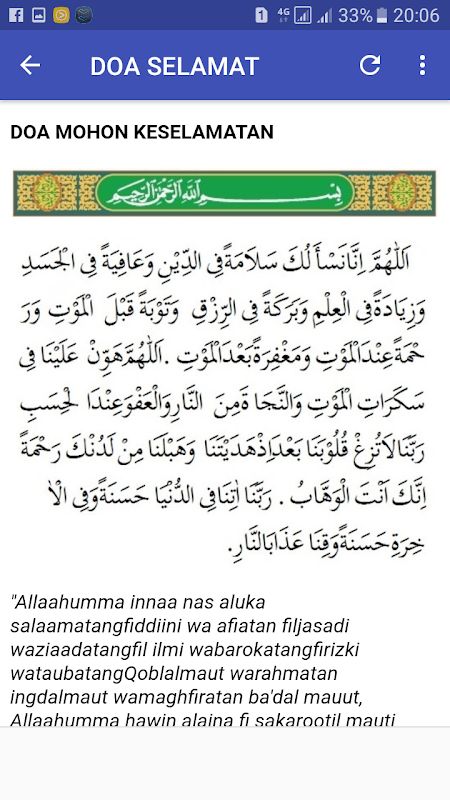 4G 33% 20:06
DOA SELAMAT
DOA MOHON KESELAMATAN
بِسْمِ اللهِ الرَّحْمٰنِ الرَّحِيْمِ
اَللّٰهُمَّ اِنَّانَسْأَلُكَ سَلَامَةً فِى الدِّيْنِ وَعَافِيَةً فِى الْجَسَدِ
وَزِيَادَةً فِى الْعِلْمِ وَبَرَكَةً فِى الرِّزْقِ وَتَوْبَةً قَبْلَ الْمَوْتِ وَرَ
حْمَةً عِنْدَالْمَوْتِ وَمَغْفِرَةً بَعْدَالْمَوْتِ . اَللّٰهُمَّ هَوِّنْ عَلَيْنَا فِى
سَكَرَاتِ الْمَوْتِ وَالنَّجَا ةَ مِنَ النَّارِوَالْعَفْوَعِنْدَا لْحِسَبِ
رَبَّنَالَاتُزِغْ قُلُوْبَنَا بَعْدَاِذْهَدَيْتَنَا وَهَبْلَنَا مِنْ لَدُنْكَ رَحْمَةً
اِنَّكَ اَنْتَ الْوَهَّابُ . رَبَّنَا اٰتِنَافِى الدُّنْيَا حَسَنَةً وَفِى الْاٰ
خِرَةِ حَسَنَةً وَقِنَا عَذَابَالنَّارِ.
"Allaahumma innaa nas aluka
salaamatangfiddiini wa afiatan filjasadi
waziaadatangfil ilmi wabarokatangfirizki
wataubatangQoblalmaut warahmatan
ingdalmaut wamaghfiratan ba'dal mauut,
Allaahumma hawin alaina fi sakarootil mauti